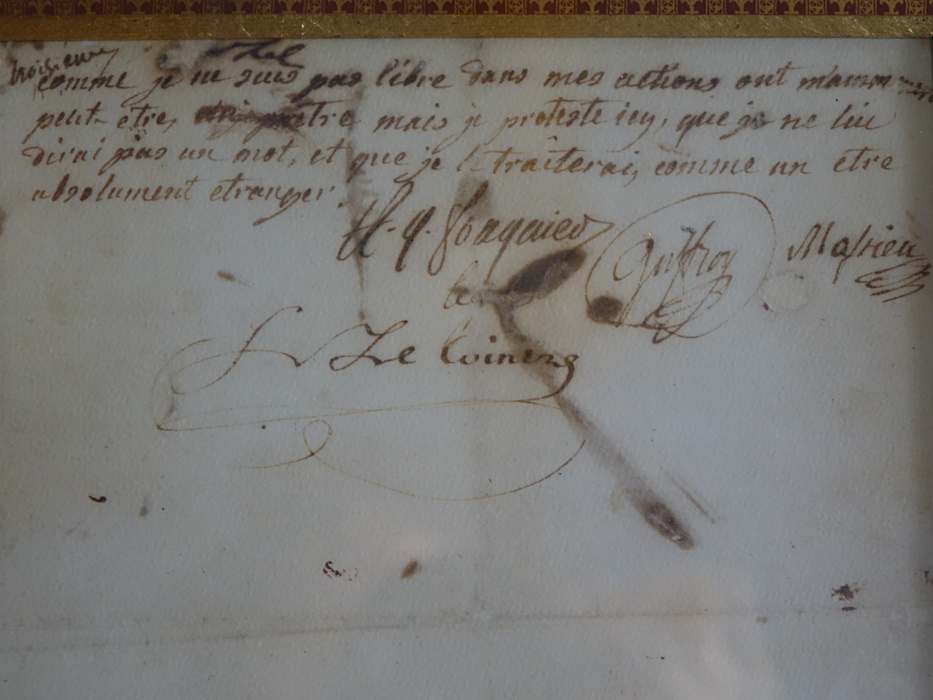 troisieme
comme je ne suis pas libre dans mes actions ont m'amon
peut-etre, pretre mais je proteste icy, que je ne lui
dirai pas un mot, et que je le traiterai, comme un etre
absolument etranger.
A. q. fouquier
Guffroy
Massieu